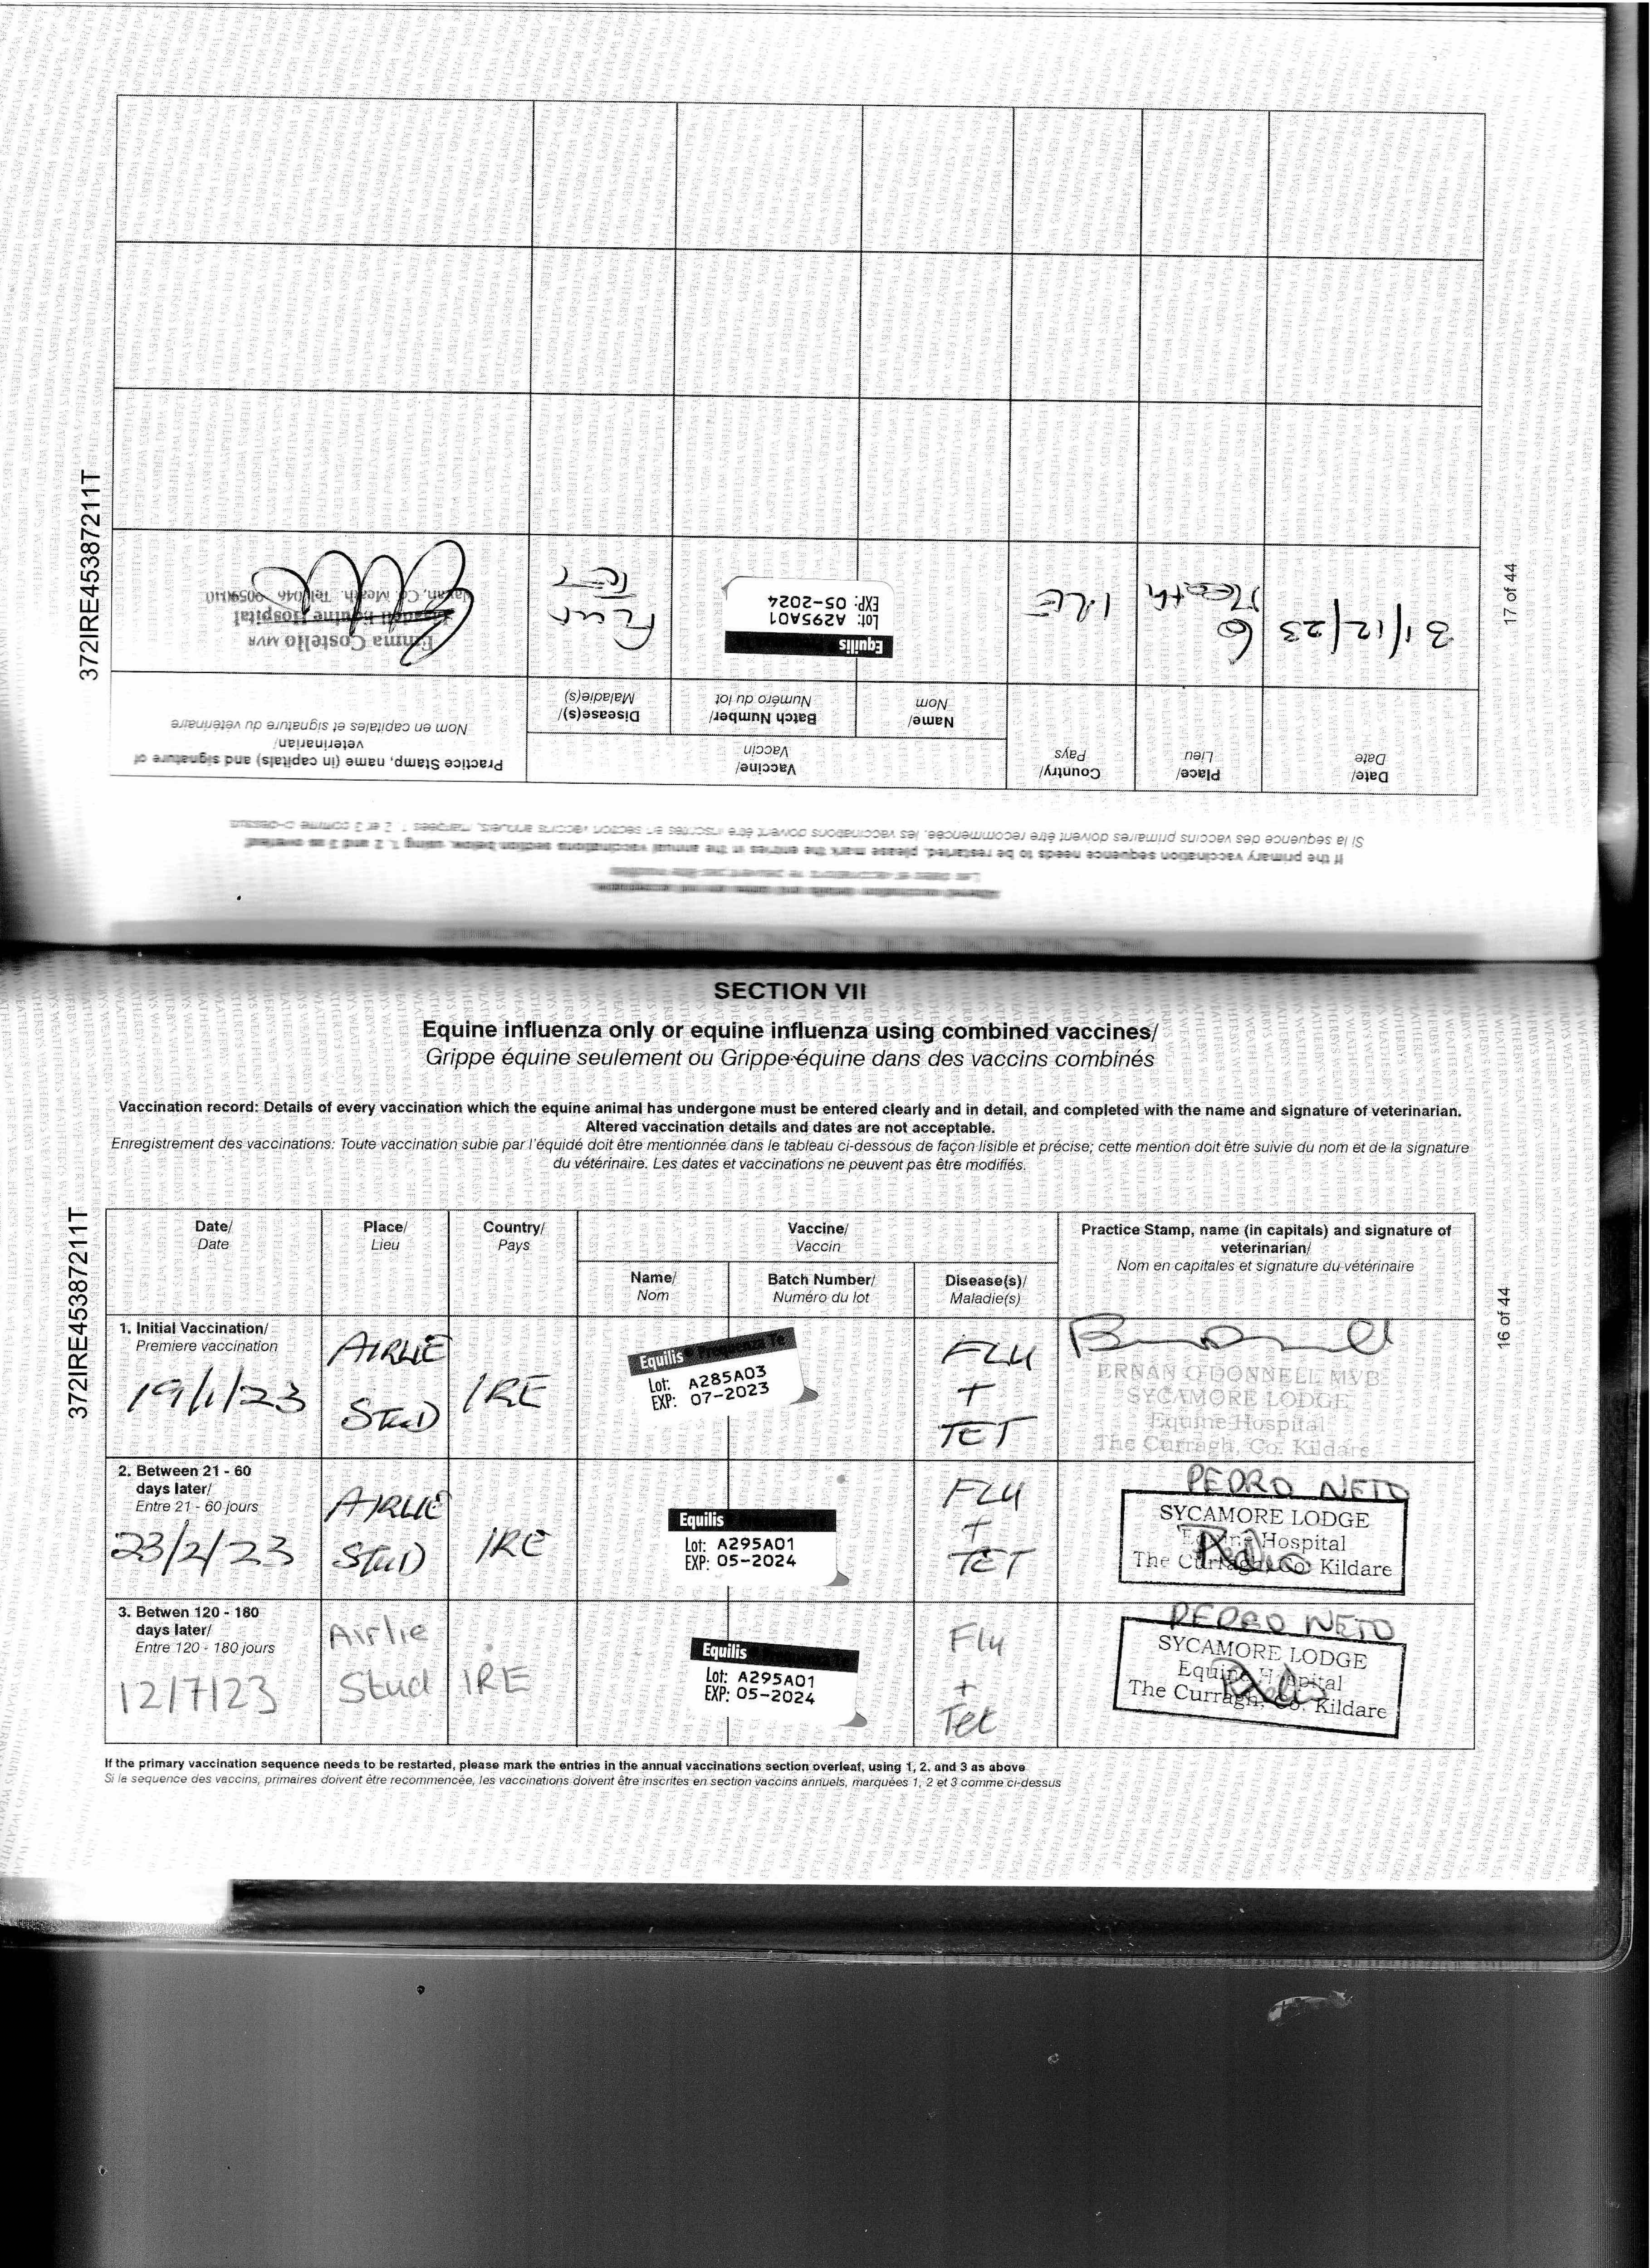 SECTION VII
Equine influenza only or equine influenza using combined vaccines/
Grippe équine seulement ou Grippe équine dans des vaccins combinés
Vaccination record: Details of every vaccination which the equine animal has undergone must be entered clearly and in detail, and completed with the name and signature of veterinarian.
Altered vaccination details and dates are not acceptable.
Enregistrement des vaccinations: Toute vaccination subie par l'équidé doit être mentionnée dans le tableau ci-dessous de façon lisible et précise; cette mention doit être suivie du nom et de la signature
du vétérinaire. Les dates et vaccinations ne peuvent pas être modifiés.
372IRE45387211T
16 of 44
Date/
Date
Place/
Lieu
Country/
Pays
Vaccine/
Vaccin
Name/
Nom
Batch Number/
Numéro du lot
Disease(s)/
Maladie(s)
Practice Stamp, name (in capitals) and signature of
veterinarian/
Nom en capitales et signature du vétérinaire
1. Initial Vaccination/
Premiere vaccination
19/1/23
AIRLIE
STUD
IRE
Equilis Prequenza Te
Lot: A285A03
EXP: 07-2023
FLU
+
TET
ERNAN O'DONNELL MVB
SYCAMORE LODGE
Equine Hospital
The Curragh, Co. Kildare
2. Between 21 - 60
days later/
Entre 21 - 60 jours
23/2/23
AIRLIE
STUD
IRE
Equilis
Lot: A295A01
EXP: 05-2024
FLU
+
TET
PEDRO NETO
SYCAMORE LODGE
Equine Hospital
The Curragh, Co. Kildare
3. Betwen 120 - 180
days later/
Entre 120 - 180 jours
12/7/23
Airlie
Stud
IRE
Equilis
Lot: A295A01
EXP: 05-2024
Flu
+
Tet
PEDRO NETO
SYCAMORE LODGE
Equine Hospital
The Curragh, Co. Kildare
If the primary vaccination sequence needs to be restarted, please mark the entries in the annual vaccinations section overleaf, using 1, 2, and 3 as above
Si la sequence des vaccins, primaires doivent être recommencée, les vaccinations doivent être inscrites en section vaccins annuels, marquées 1, 2 et 3 comme ci-dessus
Altered vaccination details and dates are not acceptable.
Les dates et vaccinations ne peuvent pas être modifiés
If the primary vaccination sequence needs to be restarted, please mark the entries in the annual vaccinations section below, using 1, 2 and 3 as overleaf
Si la séquence des vaccins primaires doivent être recommencée, les vaccinations doivent être inscrites en section vaccins annuels, marquées 1, 2 et 3 comme ci-dessus
372IRE45387211T
17 of 44
Date/
Date
Place/
Lieu
Country/
Pays
Vaccine/
Vaccin
Name/
Nom
Batch Number/
Numéro du lot
Disease(s)/
Maladie(s)
Practice Stamp, name (in capitals) and signature of
veterinarian/
Nom en capitales et signature du vétérinaire
31/12/23
Co
Meath
IRE
Equilis
Lot: A295A01
EXP: 05-2024
Flu
Tet
Emma Costello MVB
Equine Hospital
Navan, Co. Meath. Tel: 046